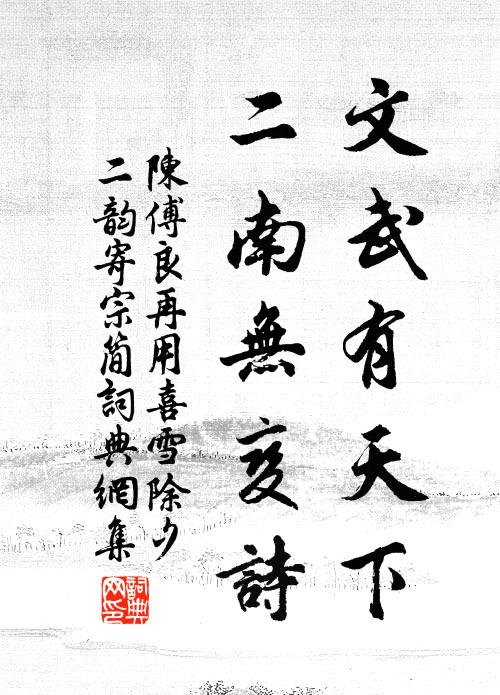 文武有天下
二南無變詩
陳傅良再用喜雪除夕
二韵寄宗簡詞典網集
詞典
网印